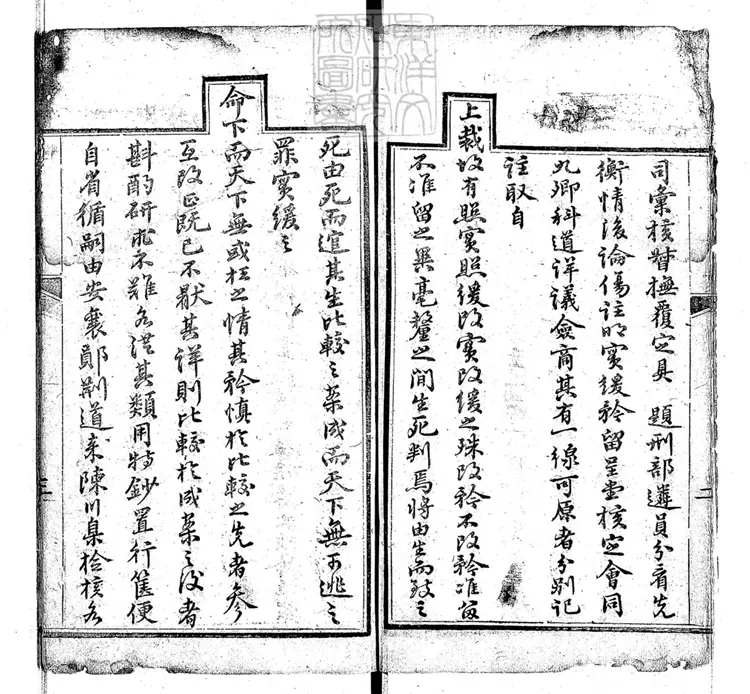 東洋文
化研究
所圖書
司彙核督撫覆定具 題刑部遴員分看先
衡情後論傷註明實緩矜留呈堂核定會同
九卿科道詳議僉商其有一線可原者分別記
註取自
上裁故有照實照緩改實改緩之殊改矜不改矜准留
不准留之異毫釐之間生死判焉將由生而致之
二
死由死而追其生比較之案成而天下無可逃之
罪實緩之
命下而天下無或枉之情其矜慎於比較之先者參
互改正既已不厭其詳則比較於成案之後者
斟酌研求不難各從其類用特鈔置行篋便
自省循嗣由安襄鄖荊道來陳川臬檢核各
三